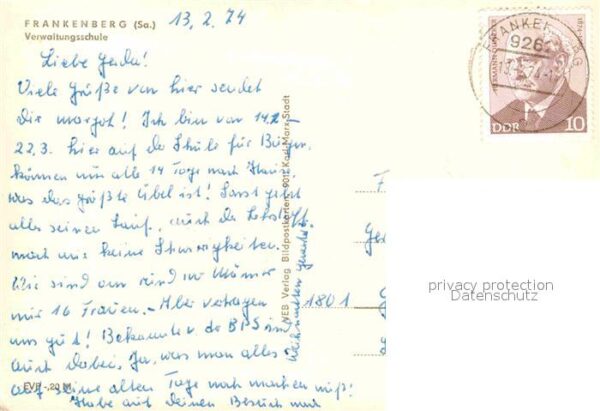 FRANKENBERG (Sa.)
Verwaltungsschule
13.2.74
Liebe Gerda!
Viele Grüße von hier sendet
Dir Margot! Ich bin vom 14.2.–
22.3. hier auf der Schule für Bürger
können nur alle 14 Tage nach Hause
was das größte Übel ist! Sonst geht
alles seinen Lauf, auch der Lehrstoff
macht uns keine Schwierigkeiten.
Wir sind nur Männer
nur 16 Frauen. Aber vertragen
uns gut! Bekannte v. der BPS sind
auch dabei. Ja, was man alles
auf seine alten Tage noch machen muß!
Habe auf Deinen Besuch
Weihnachten gewartet.
NEB Verlag Bildpostkarten, 901 Karl-Marx-Stadt
EVP -,20 M
1801
FRANKENBERG
926
HERMANN DUNCKER
1874
DDR
10
privacy protection
Datenschutz